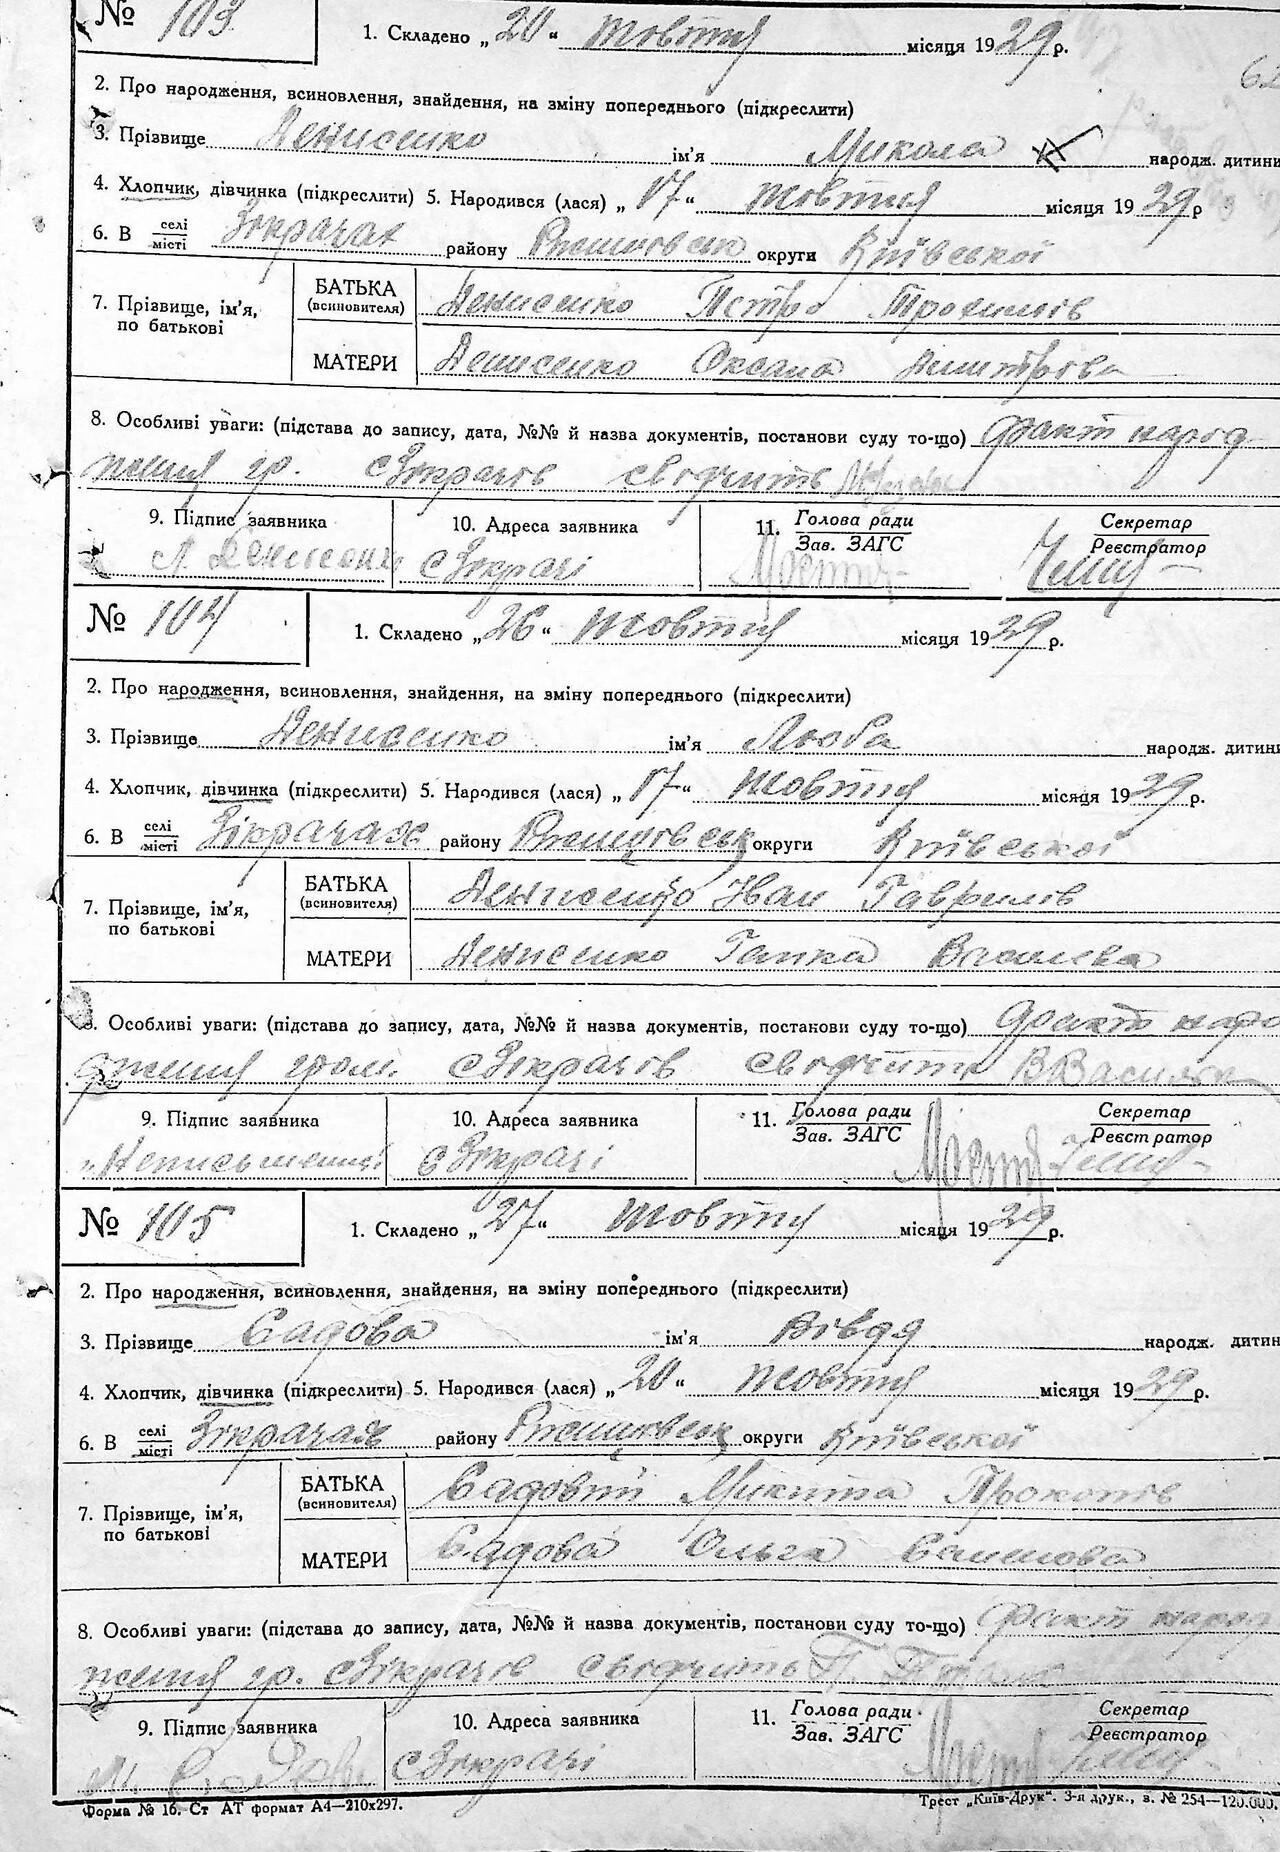 № 103
1. Складено „20“ жовтня місяця 1929 р.
2. Про народження, всиновлення, знайдення, на зміну попереднього (підкреслити)
3. Прізвище Денисенко ім'я Микола народж. дитини
4. Хлопчик, дівчинка (підкреслити) 5. Народився (лася) „17“ жовтня місяця 1929 р
6. В селі/місті Зікрачах району Ржищівськ округи Київської
7. Прізвище, ім'я, по батькові
БАТЬКА (всиновителя) Денисенко Петро Трохимів
МАТЕРИ Денисенко Оксана Дмитрова
8. Особливі уваги: (підстава до запису, дата, №№ й назва документів, постанови суду то-що) факт народ-
ження гр. с Зікрачів свідчить
9. Підпис заявника 10. Адреса заявника 11. Голова ради/Зав. ЗАГС Секретар/Реєстратор
П. Денисенко с Зікрачі
№ 104
1. Складено „26“ жовтня місяця 1929 р.
2. Про народження, всиновлення, знайдення, на зміну попереднього (підкреслити)
3. Прізвище Денисенко ім'я Люба народж. дитини
4. Хлопчик, дівчинка (підкреслити) 5. Народився (лася) „17“ жовтня місяця 1929 р.
6. В селі/місті Зікрачах району Ржищівськ округи Київської
7. Прізвище, ім'я, по батькові
БАТЬКА (всиновителя) Денисенко Іван Гаврилів
МАТЕРИ Денисенко Ганка Василева
8. Особливі уваги: (підстава до запису, дата, №№ й назва документів, постанови суду то-що) факт наро
дження гром. с Зікрачів свідчить
9. Підпис заявника 10. Адреса заявника 11. Голова ради/Зав. ЗАГС Секретар/Реєстратор
Неписьменний с Зікрачі
№ 105
1. Складено „27“ жовтня місяця 1929 р.
2. Про народження, всиновлення, знайдення, на зміну попереднього (підкреслити)
3. Прізвище Садова ім'я Вівдя народж. дитин
4. Хлопчик, дівчинка (підкреслити) 5. Народився (лася) „20“ жовтня місяця 1929 р.
6. В селі/місті Зікрачах району Ржищівськ округи Київської
7. Прізвище, ім'я, по батькові
БАТЬКА (всиновителя) Садовий Микита Прокопів
МАТЕРИ Садова Ольга Семенова
8. Особливі уваги: (підстава до запису, дата, №№ й назва документів, постанови суду то-що) факт народ
ження гр. с Зікрачів свідчить
9. Підпис заявника 10. Адреса заявника 11. Голова ради/Зав. ЗАГС Секретар/Реєстратор
с Зікрачі
Форма № 16. Ст АТ формат А4—210х297. Трест „Київ-Друк“. 3-я друк., з. № 254—120.000.